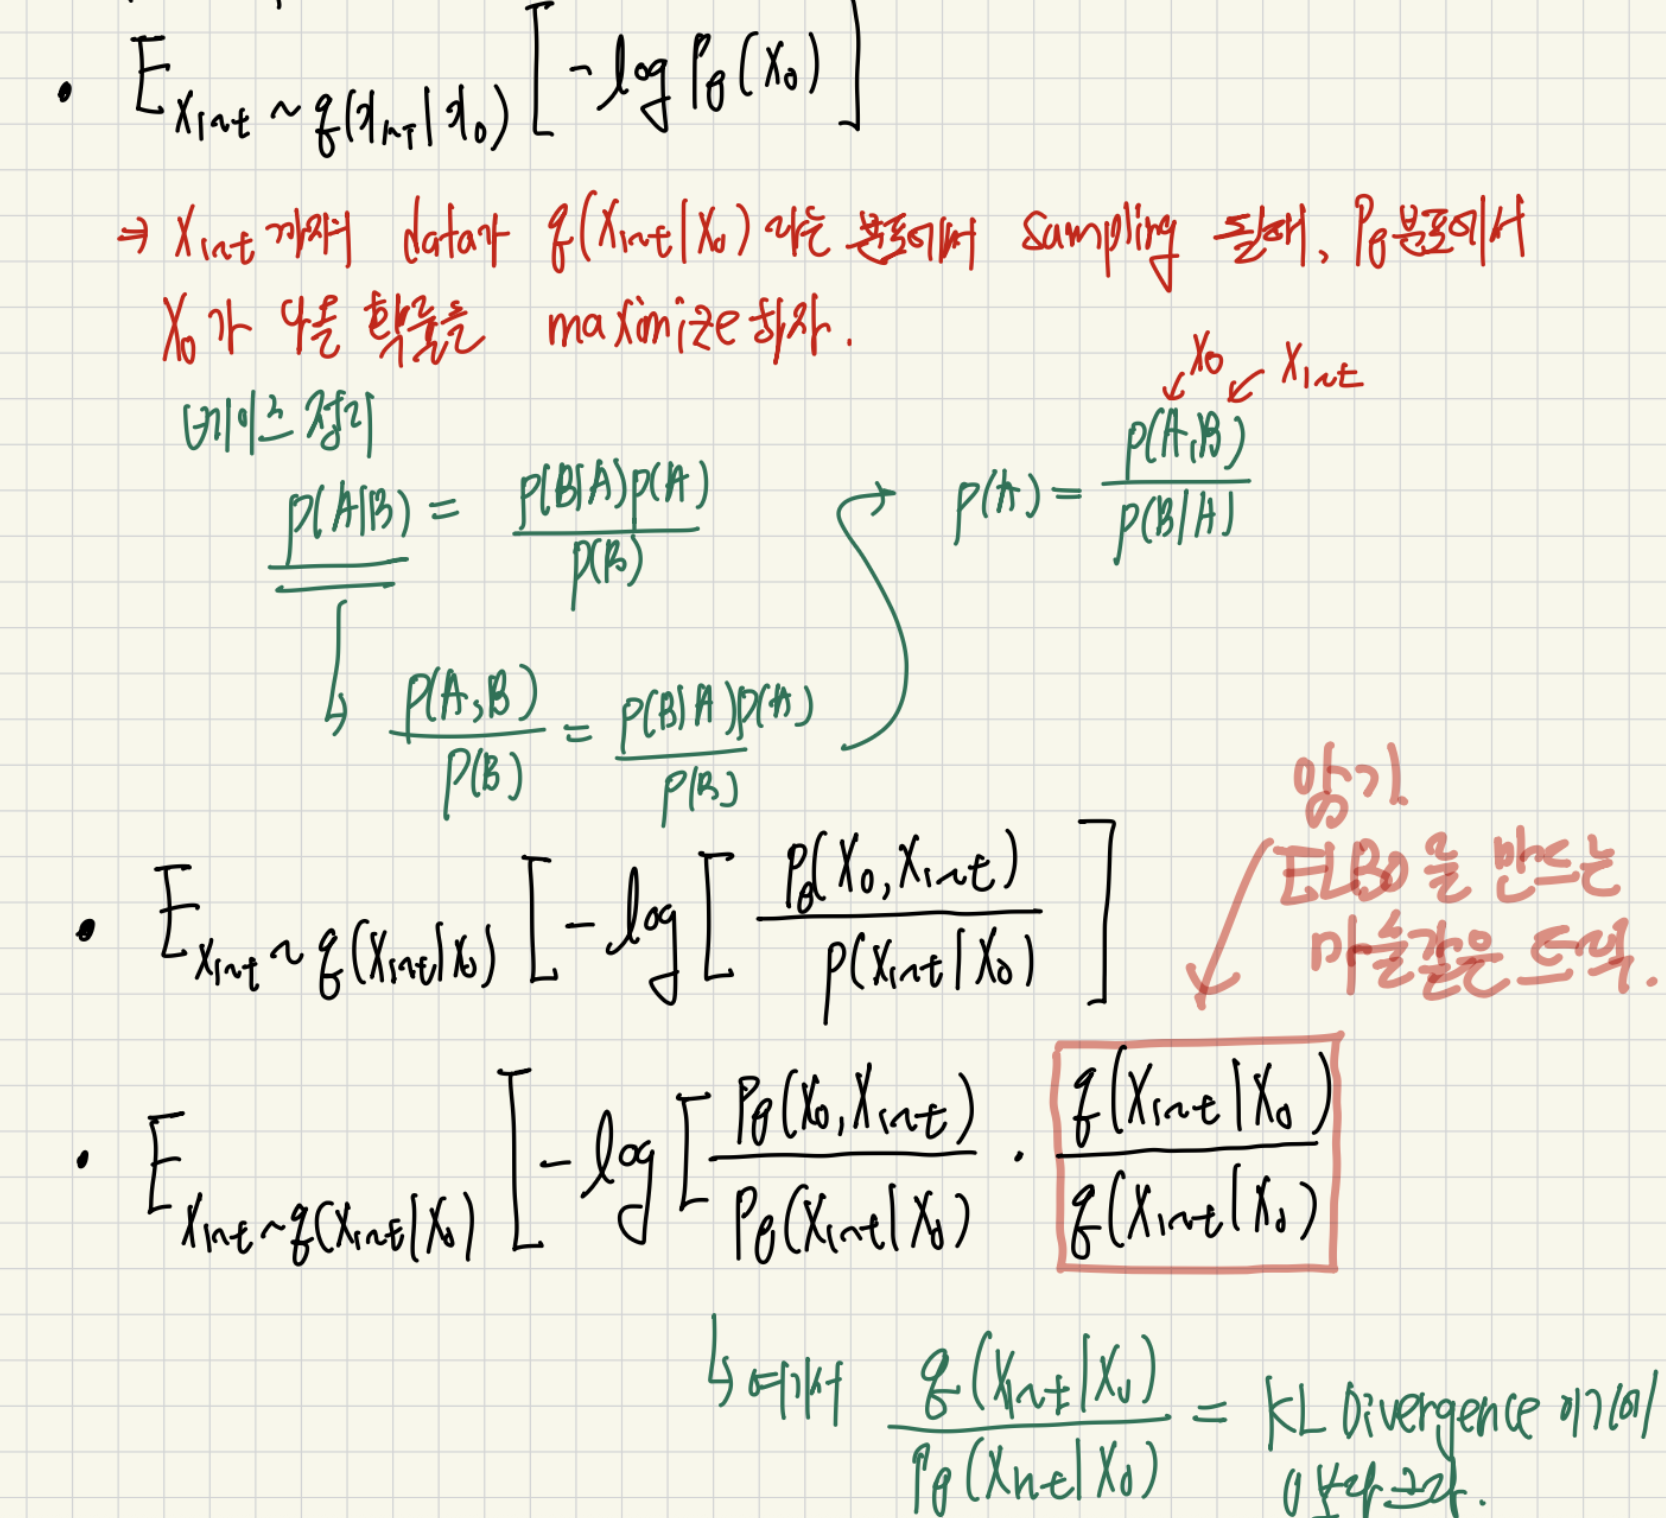 • E_{x_int ~ q(x_int|x_0)} [ -log P_θ(x_0) ]
→ X_int 까지의 data가 q(X_int|X_0) 라는 분포에서 sampling 될때, P_θ 분포에서
X_0가 나올 확률을 maximize하자.
X_0 X_int
베이즈 정리
p(A|B) = p(B|A)p(A) / p(B)
p(A) = p(A,B) / p(B|A)
p(A,B) / p(B) = p(B|A)p(A) / p(B)
암기
ELBO를 만드는
마술같은 트릭.
• E_{x_int ~ q(x_int|x_0)} [ -log [ P_θ(X_0, X_int) / p(X_int|X_0) ]
• E_{x_int ~ q(x_int|x_0)} [ -log [ P_θ(X_0, X_int) / P_θ(X_int|X_0) · q(X_int|X_0) / q(X_int|X_0)
↳ 여기서 q(X_int|X_0) / P_θ(X_int|X_0) = KL Divergence 이기에
0보다 크다.